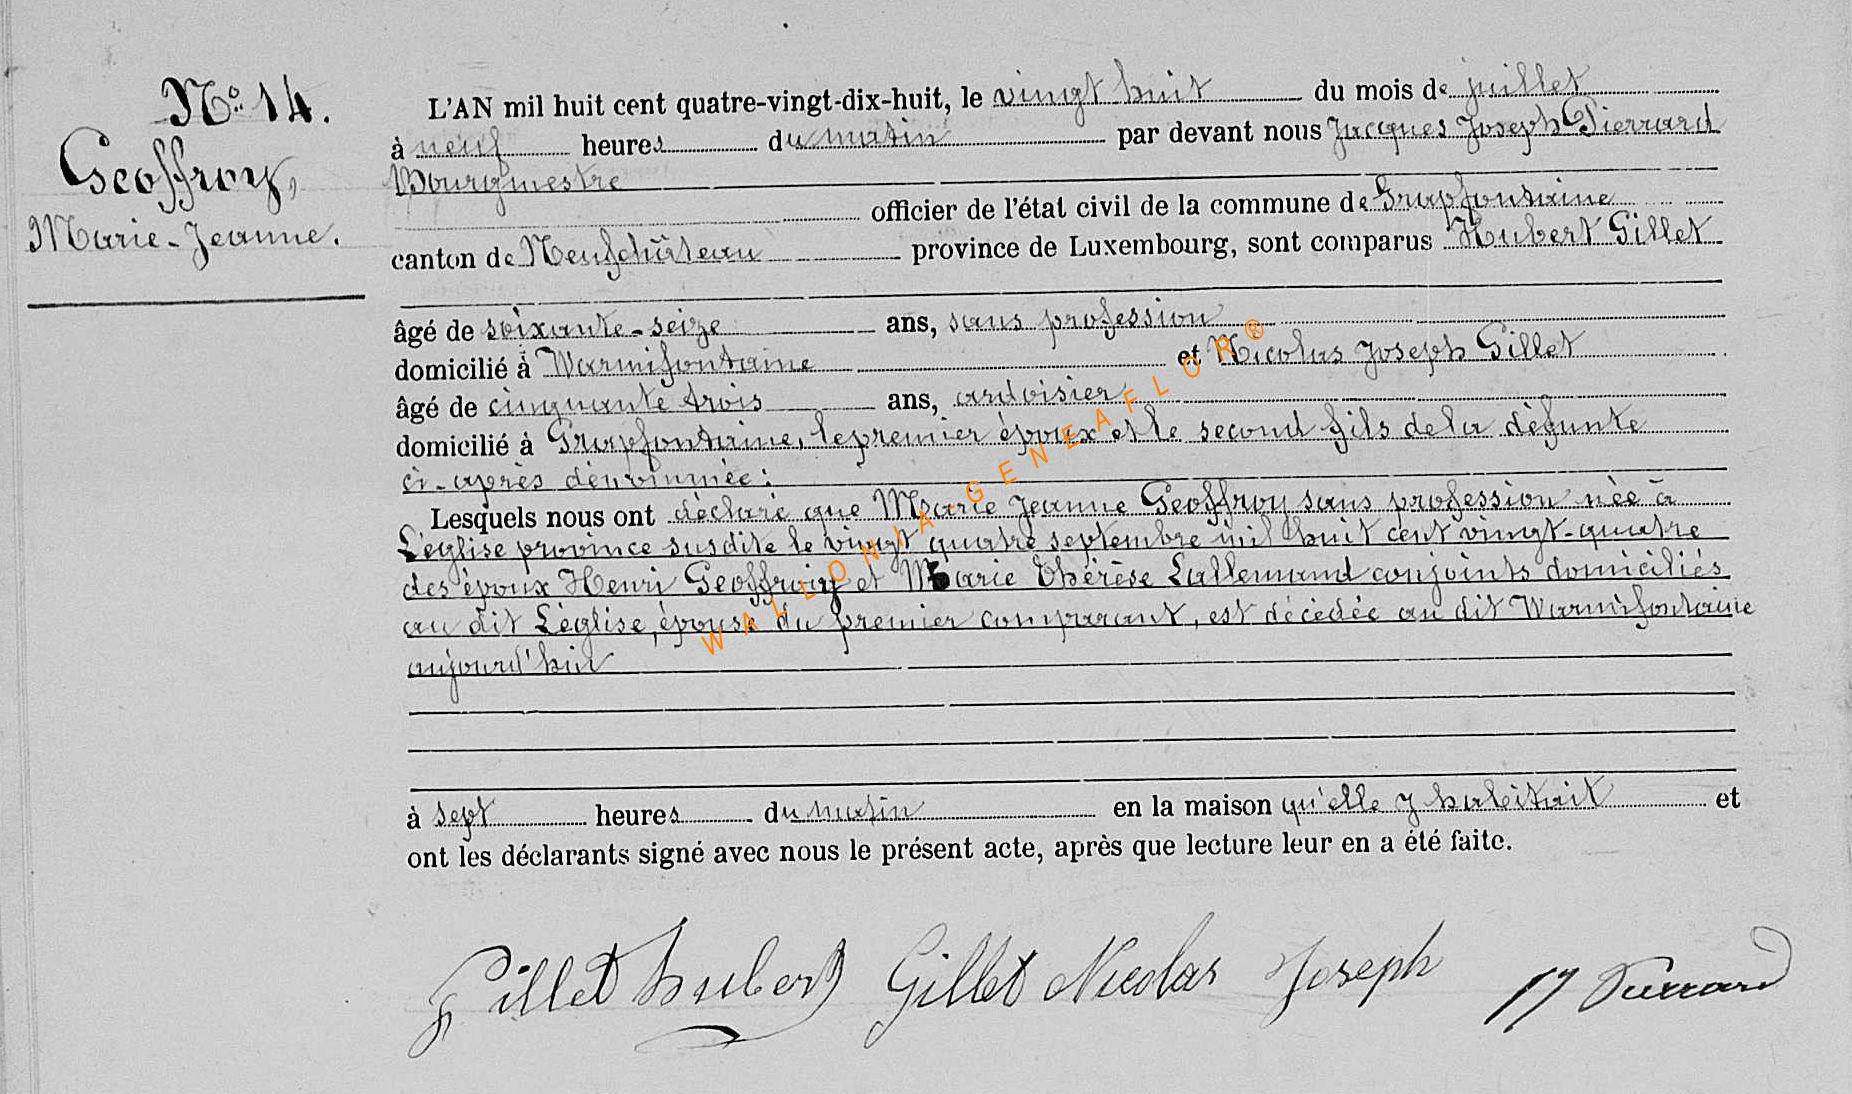 N° 14.
Geoffroy,
Marie-Jeanne.
L'AN mil huit cent quatre-vingt-dix-huit, le vingt huit du mois de juillet
à neuf heures du matin par devant nous Jacques Joseph Pierrard
Bourgmestre
officier de l'état civil de la commune de Grapfontaine
canton de Neufchâteau province de Luxembourg, sont comparus Hubert Gillet
âgé de soixante-seize ans, sans profession
domicilié à Warmifontaine et Nicolas Joseph Gillet
âgé de cinquante trois ans, ardoisier
domicilié à Grapfontaine, le premier époux et le second fils de la défunte
ci-après dénommée:
Lesquels nous ont déclaré que Marie Jeanne Geoffroy sans profession née à
Léglise province susdite le vingt quatre septembre mil huit cent vingt-quatre
des époux Henri Geoffroy et Marie Thérèse Lallemand conjoints domiciliés
au dit Léglise, épouse du premier comparant, est décédée au dit Warmifontaine
aujourd'hui
à sept heures du matin en la maison qu'elle y habitait et
ont les déclarants signé avec nous le présent acte, après que lecture leur en a été faite.
Gillet hubert Gillet Nicolas Joseph JJ Pierrard
WALLONIA GENEAFLOR®